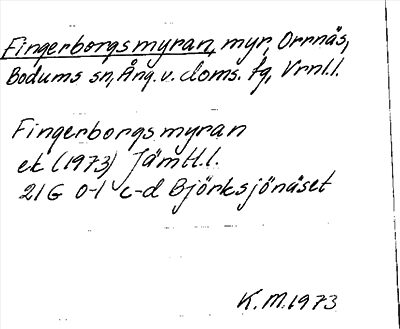 Fingerborgsmyran, myr, Orrnäs,
Bodums sn, Ång. v. doms. fg, Vrnl.l.
Fingerborgsmyran
ek (1973) Jämtl.l.
21G 0-1 c-d Björksjönäset
K.M. 1973